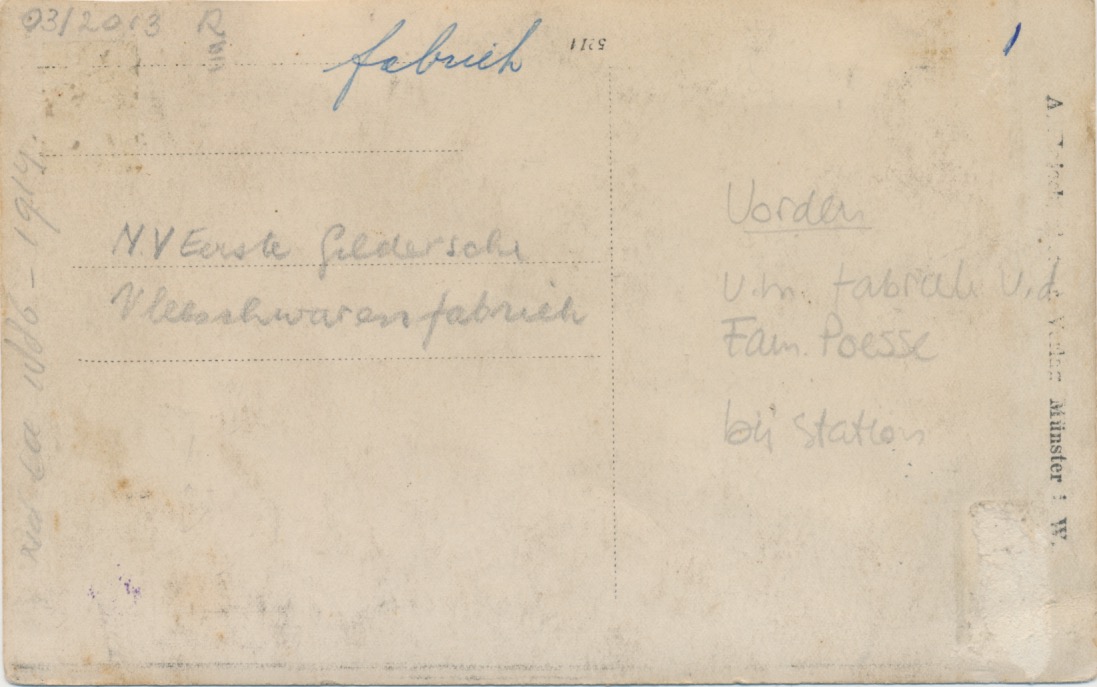 03/2013 R
fabriek
1
N.V Eerste Geldersche
Vleeschwarenfabriek
Vorden
v.m. fabriek v.d.
Fam. Poesse
bij station
1914
A.
Münster i W.